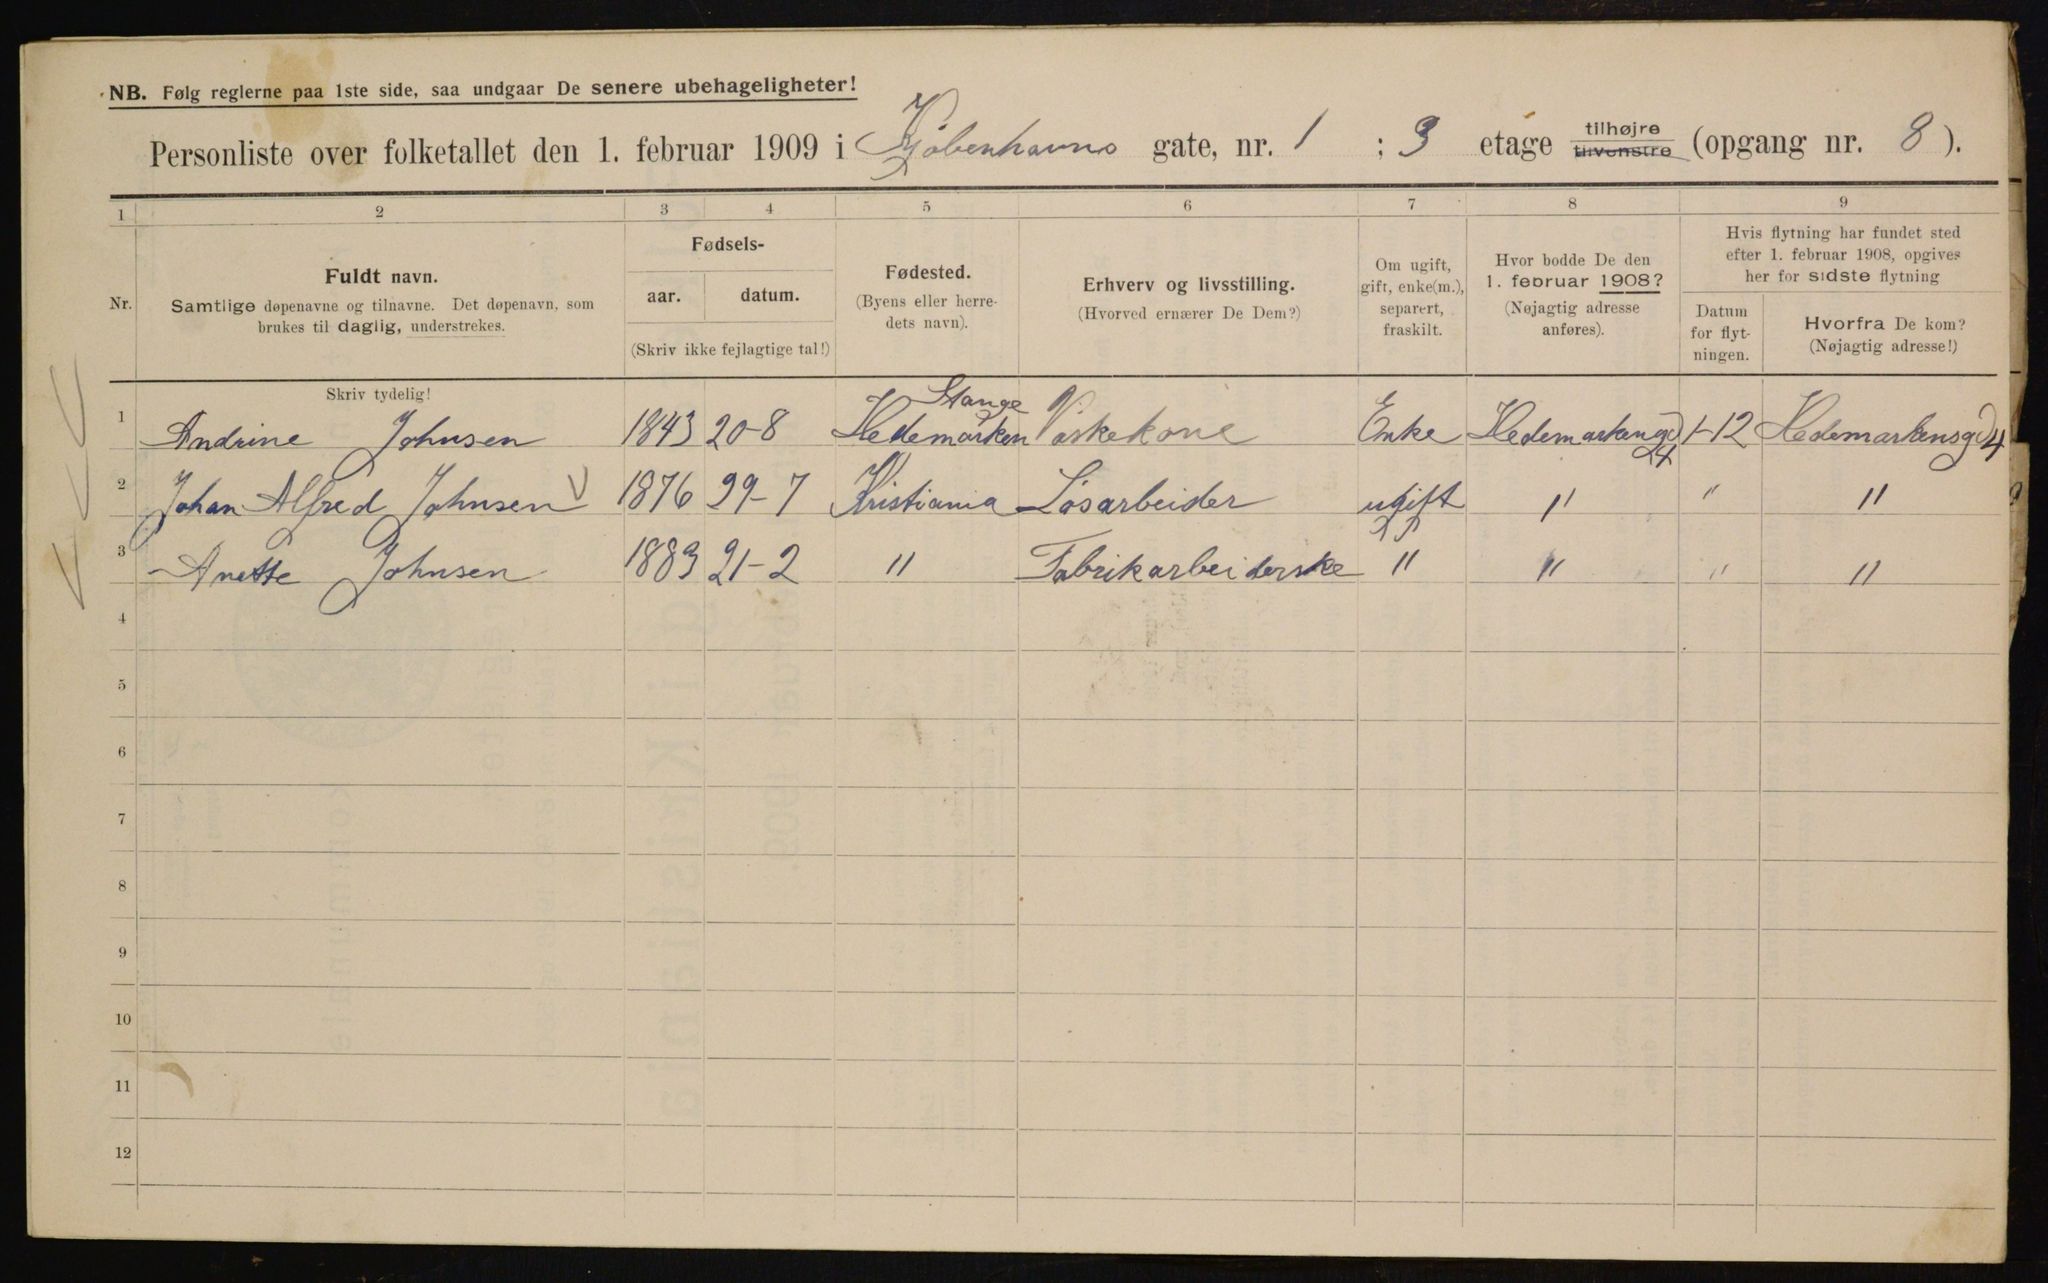 NB. Følg reglerne paa 1ste side, saa undgaar De senere ubehageligheter!
Personliste over folketallet den 1. februar 1909 i Kjøbenhavns gate, nr. 1 ; 3 etage tilhøjre tilvenstre (opgang nr. 8).
1 2 3 4 5 6 7 8 9
Nr.
Fuldt navn.
Samtlige døpenavne og tilnavne. Det døpenavn, som
brukes til daglig, understrekes.
Fødsels-
aar. datum.
(Skriv ikke fejlagtige tal!)
Fødested.
(Byens eller herre-
dets navn).
Erhverv og livsstilling.
(Hvorved ernærer De Dem?)
Om ugift,
gift, enke(m.),
separert,
fraskilt.
Hvor bodde De den
1. februar 1908?
(Nøjagtig adresse
anføres).
Hvis flytning har fundet sted
efter 1. februar 1908, opgives
her for sidste flytning
Datum
for flyt-
ningen.
Hvorfra De kom?
(Nøjagtig adresse!)
Skriv tydelig!
Stange
1 Andrine Johnsen 1843 20-8 Hedemarken Vaskekone Enke Hedemarkengd 4 1-12 Hedemarkensgd 4
2 Johan Alfred Johnsen 1876 29-7 Kristiania Løsarbeider ugift " " "
3 Anette Johnsen 1883 21-2 " Fabrikarbeiderske " " " "
4
5
6
7
8
9
10
11
12